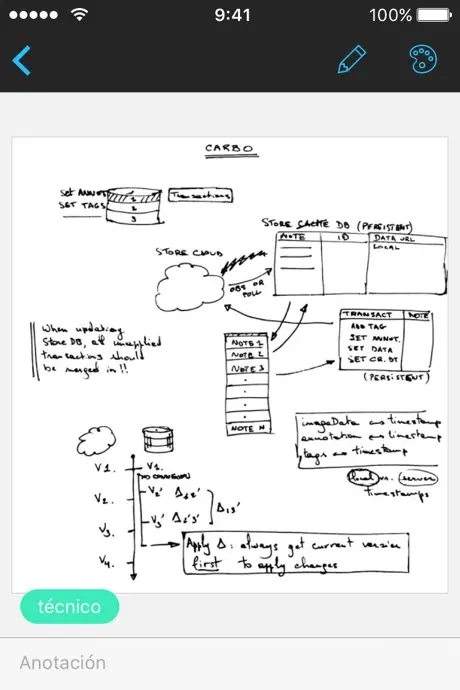 9:41
100%
CARBO
Set ANNOT.
SET TAGS
1
2
3
Transactions
STORE CACHE DB (PERSISTENT)
NOTE ID DATA URL
LOCAL
STORE CLOUD
OBS OR
POLL
TRANSACT NOTE
ADD TAG
SET ANNOT.
SET DATA
SET CR. DT
(PERSISTENT)
When updating
Store DB, all unapplied
transactions should
be merged in!!
NOTE 1
NOTE 2
NOTE 3
NOTE N
imageData ↔ timestamp
annotation ↔ timestamp
tags ↔ timestamp
local vs. server
timestamps
V1. V1.
V2. V2' Δ12'
V3' Δ2'3' Δ13'
V3.
V4.
Apply Δ: always get current version
first to apply changes
técnico
Anotación